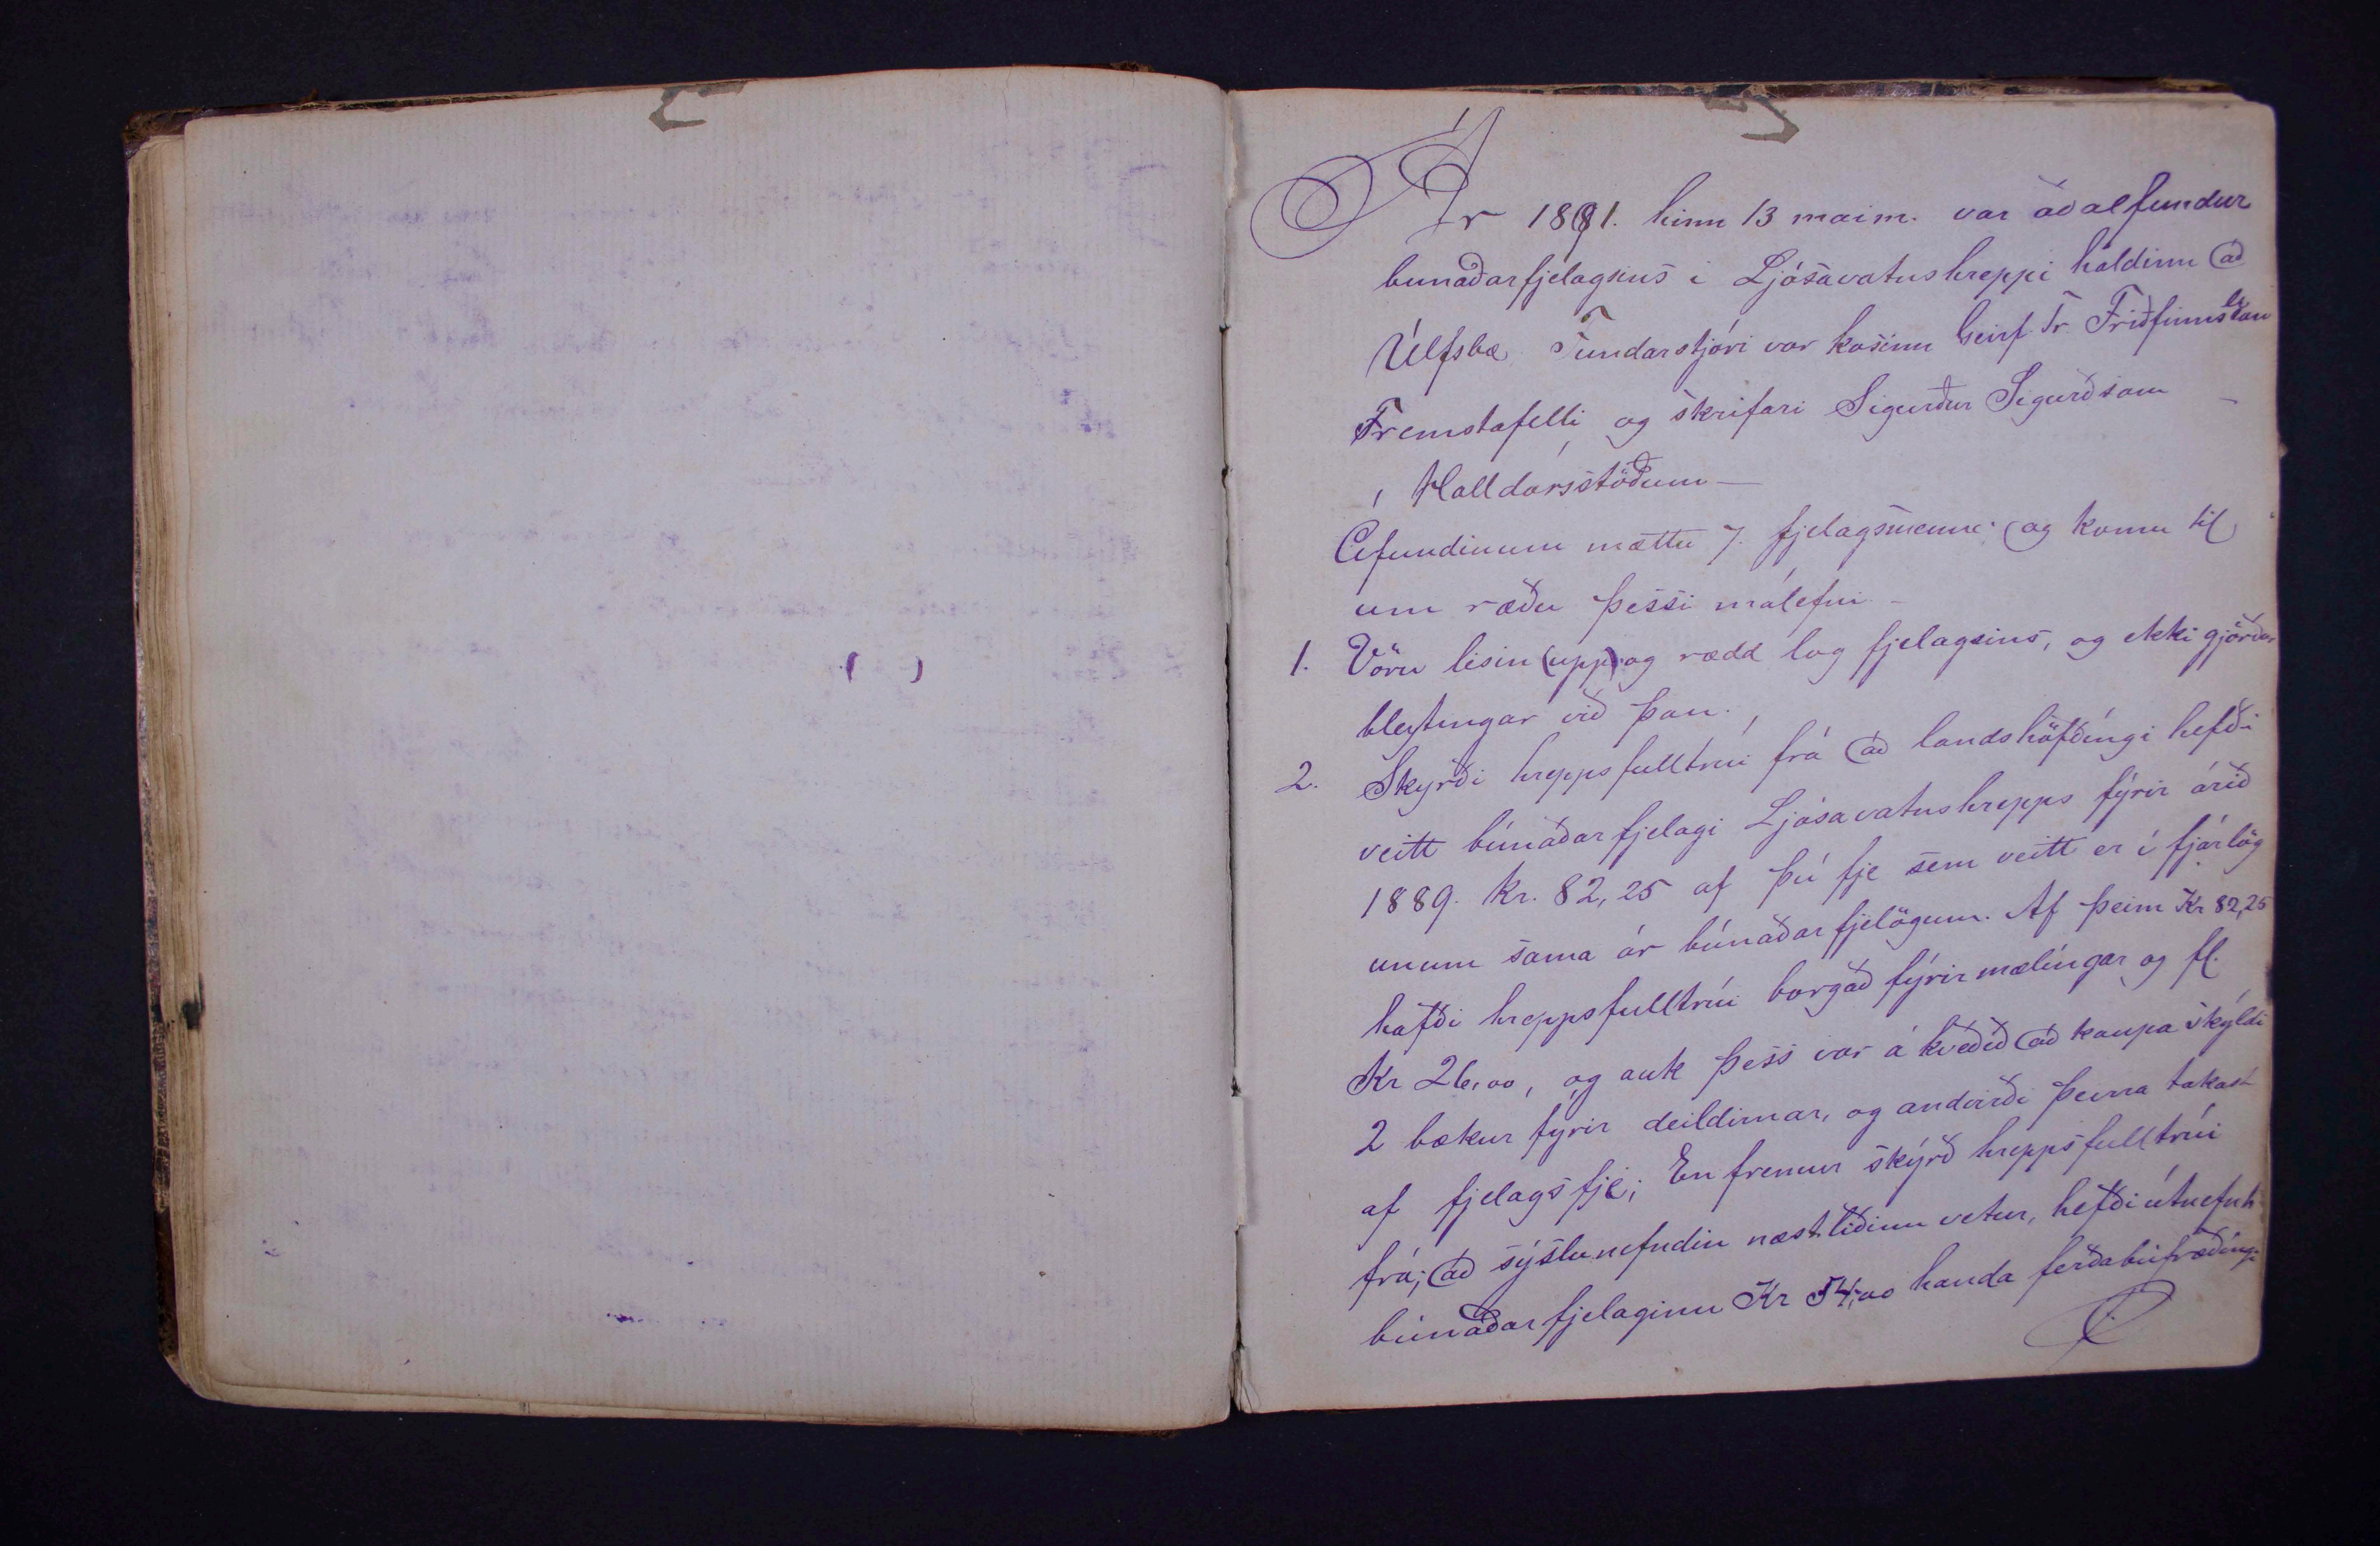 Ár 1891. hinn 13 maim. var aðalfundur
bunaðarfjelagsins i Ljósavatnshreppi haldinn að
Úlfsbæ Fundarstjóri var kosinn Geirf. Tr. Friðfinnsson
Fremstafelli og skrifari Sigurður Sigurðsson
Halldórsstöðum —
Afundinum mættu 7. fjelagsmenn; og komu til
um ræðu þessi málefni —
1. Vóru lesin (upp) og rædd lög fjelagsins, og ekki gjörðar
bleytingar við þau.
2. Skyrði hreppsfulltrúi frá að landshöfðíngi hefði
veitt búnáðarfjelagi Ljósavatnshrepps fýrir árið
1889. kr. 82,25 af þú fje sem veitt er í fjárlög
unum sama ár búnaðarfjelögum. Af þeim Kr 82,25
hafði hreppsfulltrúi borgað fýrir mælíngar og fl.
Kr 26,00, og auk þess var á kveðið að kaupa skýldi
2 bækur fýrir deildirnar, og andvirði þeirra takast
af fjelags fje; En fremur skýrð hreppsfulltrúi
frá; að sýslunefndin næstliðinn vetur, hefði útnefnt
búnaðarfjelaginu Kr 54,00 handa ferðabúfræðíngi